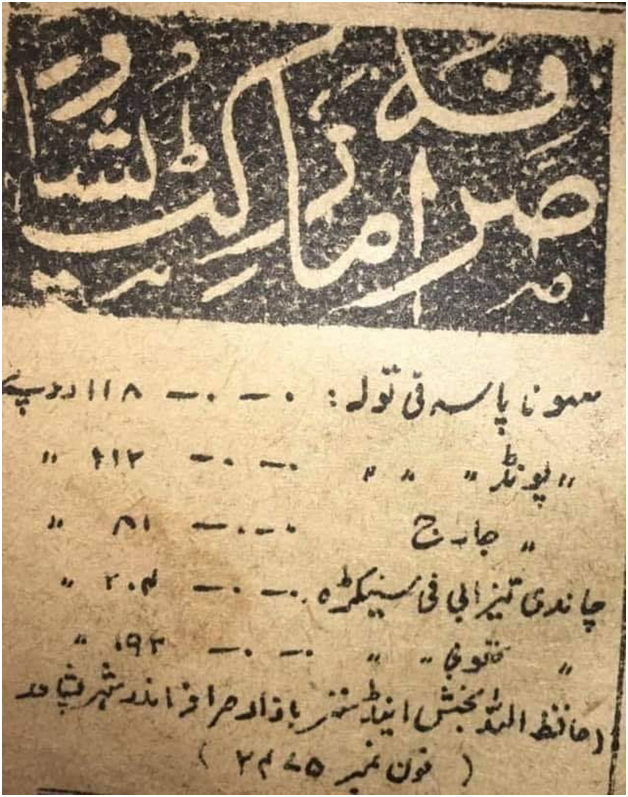 صرافہ مارکیٹ پشاور
سونا پاسہ فی تولہ : ۰-۰- ۱۱۸ روپے
〃 پونڈ 〃 〃 〃 ۰-۰- ۱۱۲ 〃
〃 جارج ۰-۰- ۸۱ 〃
چاندی تیزابی فی سینکڑہ ۰-۰- ۲۰۴ 〃
〃 〃 〃 ۰-۰- 〃
(حافظ اللہ بخش اینڈ سنز بازار صرافہ اندر شہر پشاور
(فون نمبر ۲۴۷۵)